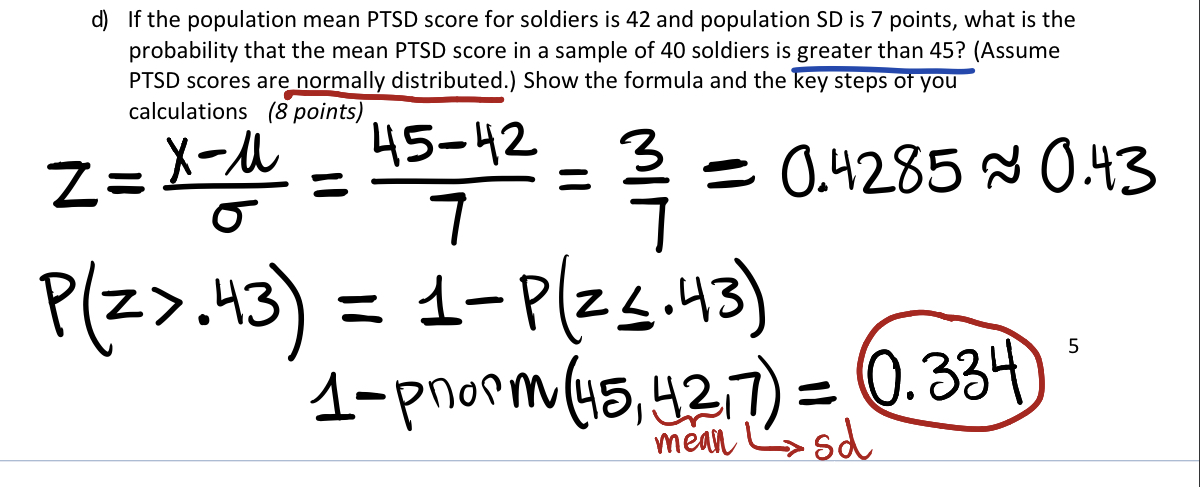 d) If the population mean PTSD score for soldiers is 42 and population SD is 7 points, what is the
probability that the mean PTSD score in a sample of 40 soldiers is greater than 45? (Assume
PTSD scores are normally distributed.) Show the formula and the key steps of you
calculations (8 points)
Z = (X-μ)/σ = (45-42)/7 = 3/7 = 0.4285 ≈ 0.43
P(z>.43) = 1-P(z≤.43)
5
1-pnorm(45,42,7) = 0.334
mean ↳ sd